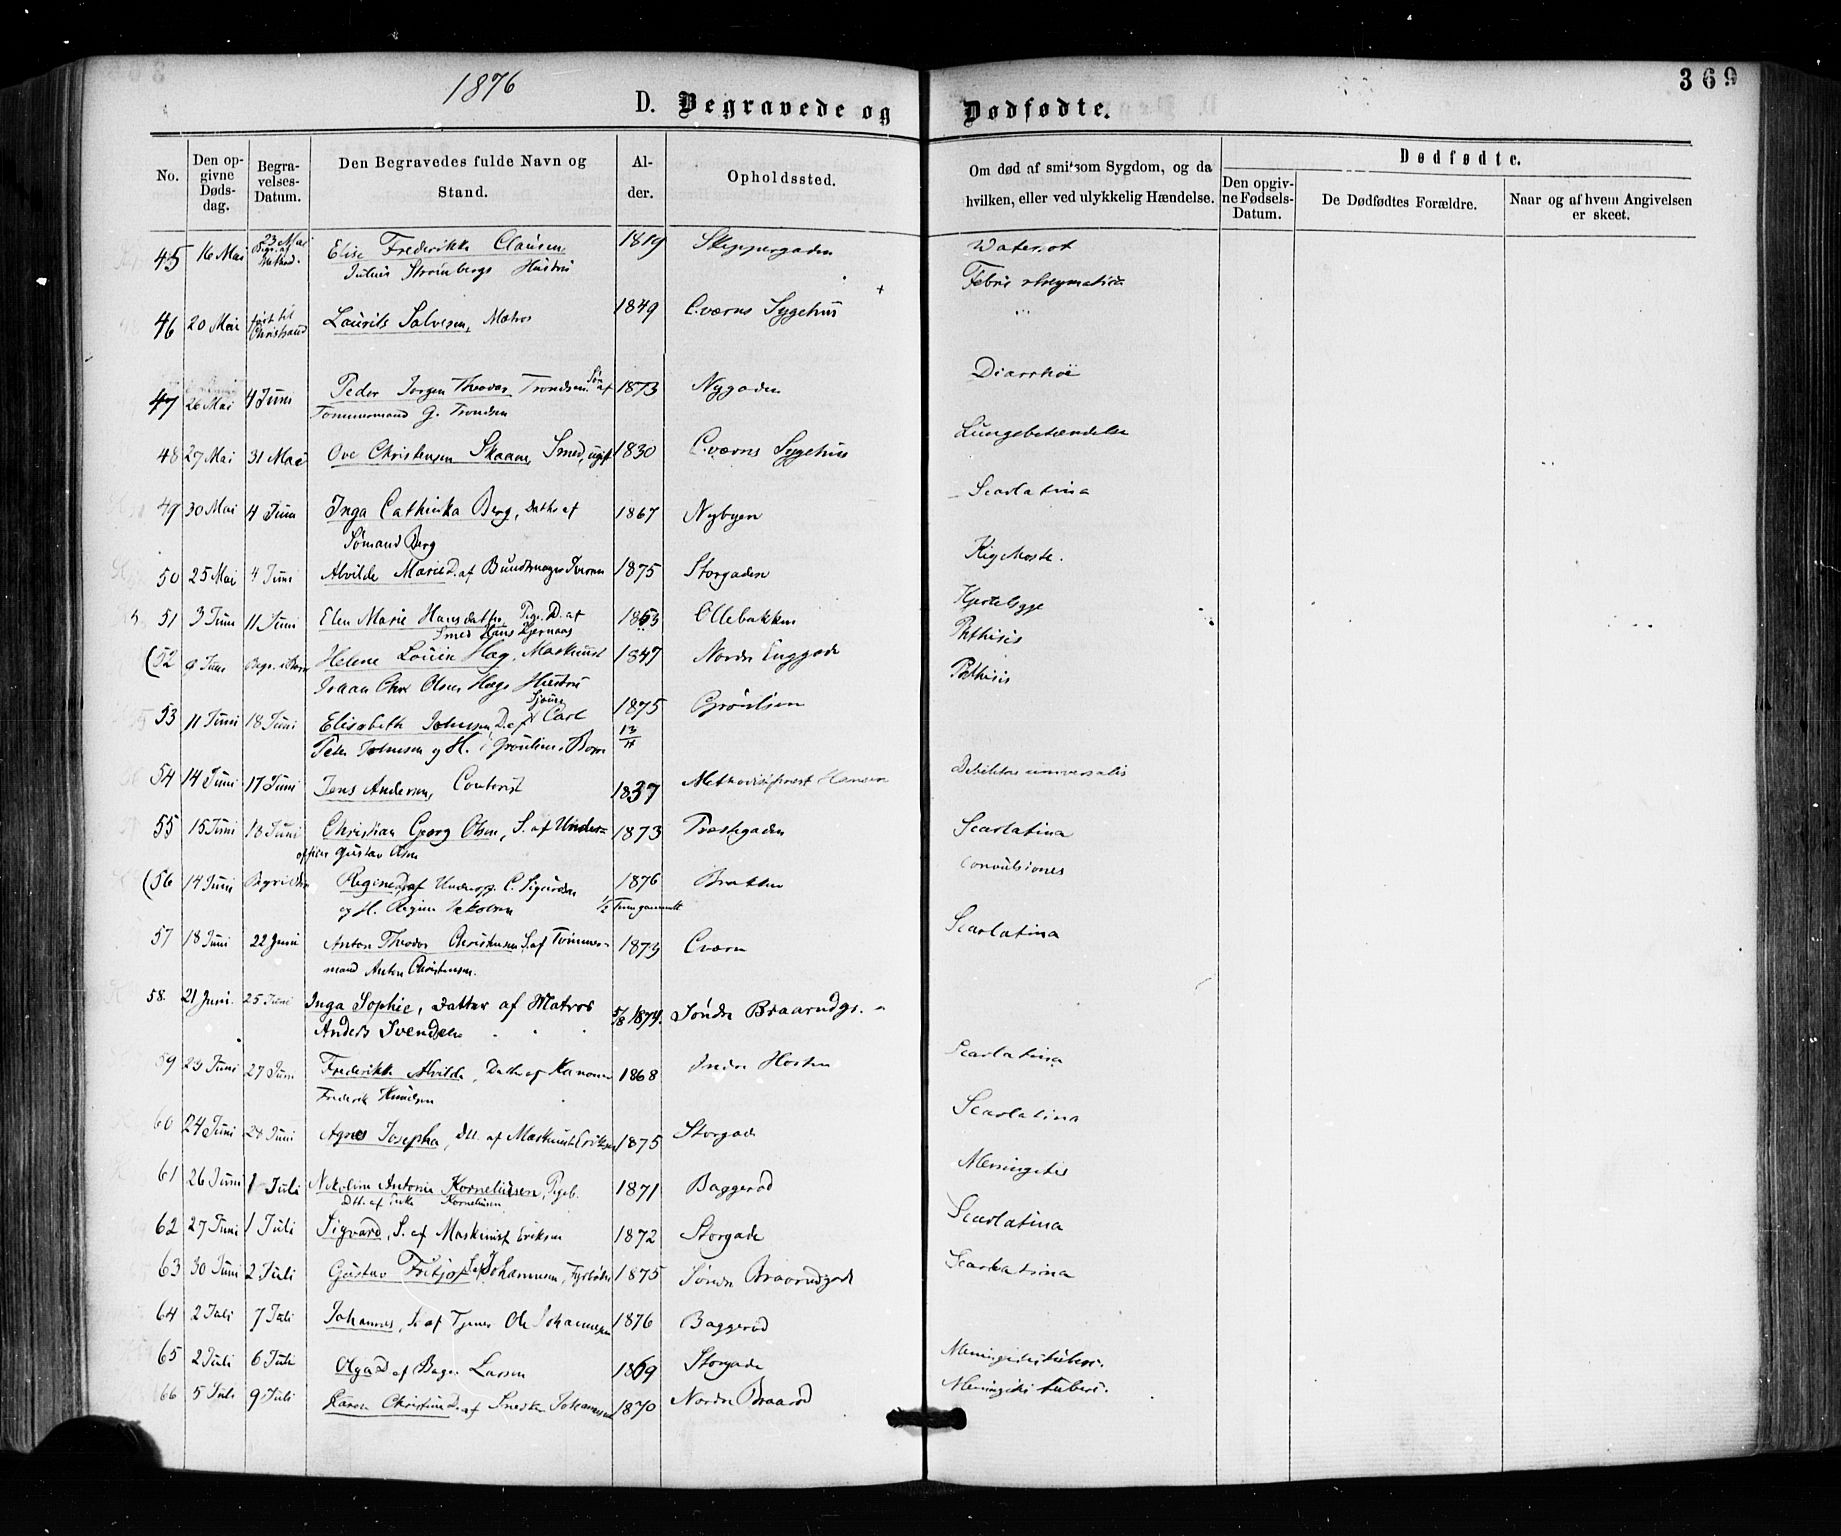 1876
369
D. Begravede og Dødfødte.
No. Den opgivne Dødsdag. Begravelses-Datum. Den Begravedes fulde Navn og Stand. Alder. Opholdssted. Om død af smitsom Sygdom, og da hvilken, eller ved ulykkelig Hændelse. Dødfødte.
Den opgivne Fødsels-Datum. De Dødfødtes Forældre. Naar og af hvem Angivelsen er skeet.
45 16 Mai 23 Mai Elise Frederikke Clausen, 1819 Skippergaden
Julius Strömbergs Hustru
Febris rheumatica
46 20 Mai ført til Christsand Laurits Salvesen, Matros 1849 C.værns Sygehus
Diarrhöe
47 26 Mai 4 Juni Peder Jørgen Theodor Trondsen Søn af 1873 Nygaden
Tømmermand G. Trondsen
Lungebetændelse
48 27 Mai 31 Mai Ove Christensen Skaane, Smed, ugift 1830 C.værns Sygehus
Scarlatina
49 30 Mai 4 Juni Inga Cathinka Berg, Datter af 1867 Nybyen
Sømand Berg
50 25 Mai 4 Juni Alvilde Marie D. af Buntmager Iversen 1875 Storgaden Kighoste.
51 3 Juni 11 Juni Elen Marie Hansdatter, Pige. D. af 1863 Ollebakken Kjertelsyge
Smed Hans
Phthisis
(52 Juni Helene Lovise Høg, Maskinist 1847 Nordre Enggade
Phthisis
Olsen Høgs Hustru
53 11 Juni 18 Juni Elisabeth Johnsen, D. af Carl 1875
Peter Johnsen og H. 13/11
54 14 Juni 17 Juni Jens Andersen, Contorist 1837 Methodistprest Hansen Debilitas universalis
55 15 Juni 18 Juni Christian Georg Olsen, S. af Under= 1873 Træskegaden Scarlatina
officer Gustav Olsen
(56 14 Juni Regine D. af C. Sigurdsen 1876 Bratten Convulsiones
og H. Regine Jakobsen
57 18 Juni 22 Juni Anton Theodor Christensen S. af Tømmer- 1873 C.værn Scarlatina
mand Anton Christensen.
58. 21 Juni. 25 Juni Inga Sophie, Datter af Matros 5/8 1874. Søndre Braarudgs.
Anders Svendsen
59 23 Juni 27 Juni Frederikke Alvilde, Datter af Kanoner 1868 Indre Hosten Scarlatina
Frederik Knudsen
60 24 Juni Juni Agnes Josepha, Dtt. af Maskinist Eriksen 1875 Storgade Scarlatina
61 26 Juni 1 Juli Nikoline Antonie Korneliusen, Pigeb. 1871 Baggerød Meningitis
Dtt. af Korneliusen
62 27 Juni 1 Juli Sigvard, S. af Maskinist Eriksen 1872 Storgade Scarlatina
63 30 Juni 2 Juli Gustav Fritjof S. af Johannesen, Fyrbøder 1875 Søndre Braarudgade Scarlatina
64 2 Juli 7 Juli Johannes, S. af Tjener Ole Johannesen 1876 Baggerød
65 2 Juli 6 Juli Olga D. af Bager Larsen 1869 Storgade Meningitis tuberc.
66 5 Juli 9 Juli Karen Christine D. af Smed Johannesen 1870 Nordre Braarud Meningitis tuberc.